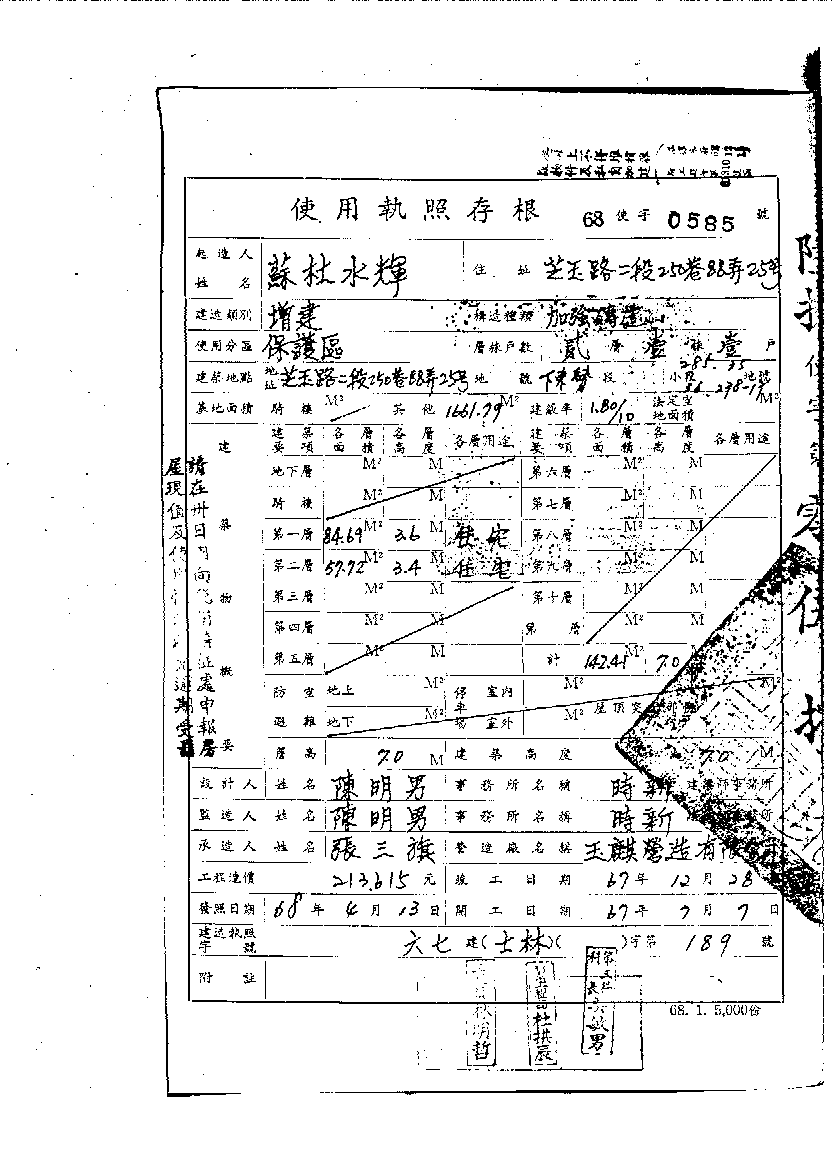 使用執照存根 68使字0585號
起造人姓名 蘇杜水輝 住址 芝玉路二段250巷88弄25号
建造類別 增建 構造種類 加強磚造
使用分區 保護區 層棟戶數 貳層 壹棟 壹戶
建築地點 地址 芝玉路二段250巷88弄25号 地號 段 小段 地號
基地面積 騎樓 M² 其他 1661.79 M² 建蔽率 1.80/10 法定空地面積 M²
建築物概要 建築要項 各層面積 各層高度 各層用途 建築要項 各層面積 各層高度 各層用途
地下層 M² M 第六層 M² M
騎樓 M² M 第七層 M² M
第一層 84.69 M² 3.6 M 住宅 第八層 M² M
第二層 57.72 M² 3.4 M 住宅 第九層 M² M
第三層 M² M 第十層 M² M
第四層 M² M 第 層 M² M
第五層 M² M 計 142.41 M² 7.0 M
防空避難 地上 M² 停車場 室內 M² 屋頂突 M²
地下 M² 室外 M²
層高 7.0 M 建築高度 7.0 M
設計人 姓名 陳明男 事務所名稱 時新 建築師事務所
監造人 姓名 陳明男 事務所名稱 時新
承造人 姓名 張三旗 營造廠名稱 玉麒營造有限
工程造價 213,615元 竣工日期 67年12月28
發照日期 68年4月13日 開工日期 67年7月7日
建造執照字號 六七建(士林)( )字第189號
附註
68. 1. 5,000份
請在卅日內向
逾期受
處申報